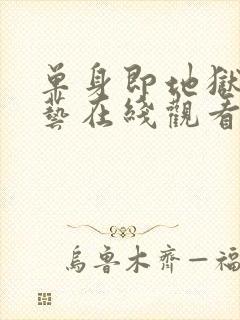 單身即地獄
藝在綫觀看
烏魯木齊—福